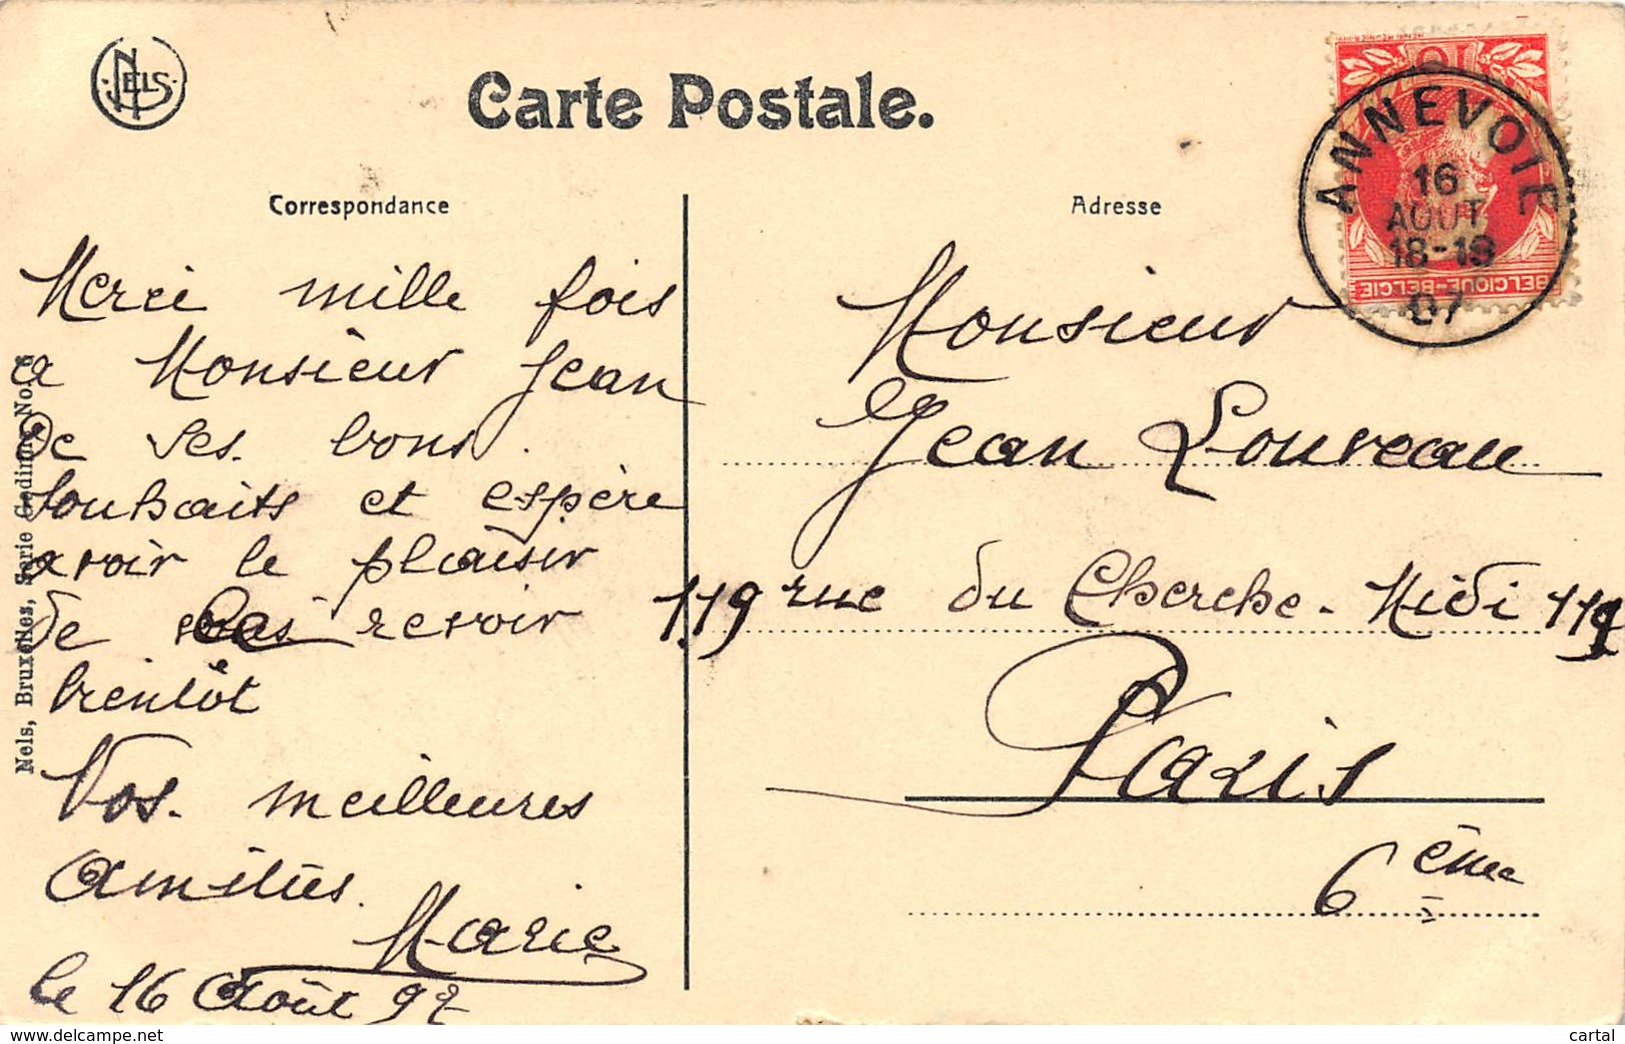 NELS
Carte Postale.
ANNEVOIE
16
AOUT
18-19
07
BELGIQUE-BELGIE
Correspondance
Merci mille fois
a Monsieur Jean
de ses bons
souhaits et espère
avoir le plaisir
de revoir
bientôt
Vos meilleures
amitiés.
Marie
le 16 Août 97
Adresse
Monsieur
Jean Louveau
119 rue du Cherche-Midi 119
Paris
6 ème
Nels, Bruxelles, Serie Godinne No.
delcampe.net
cartal